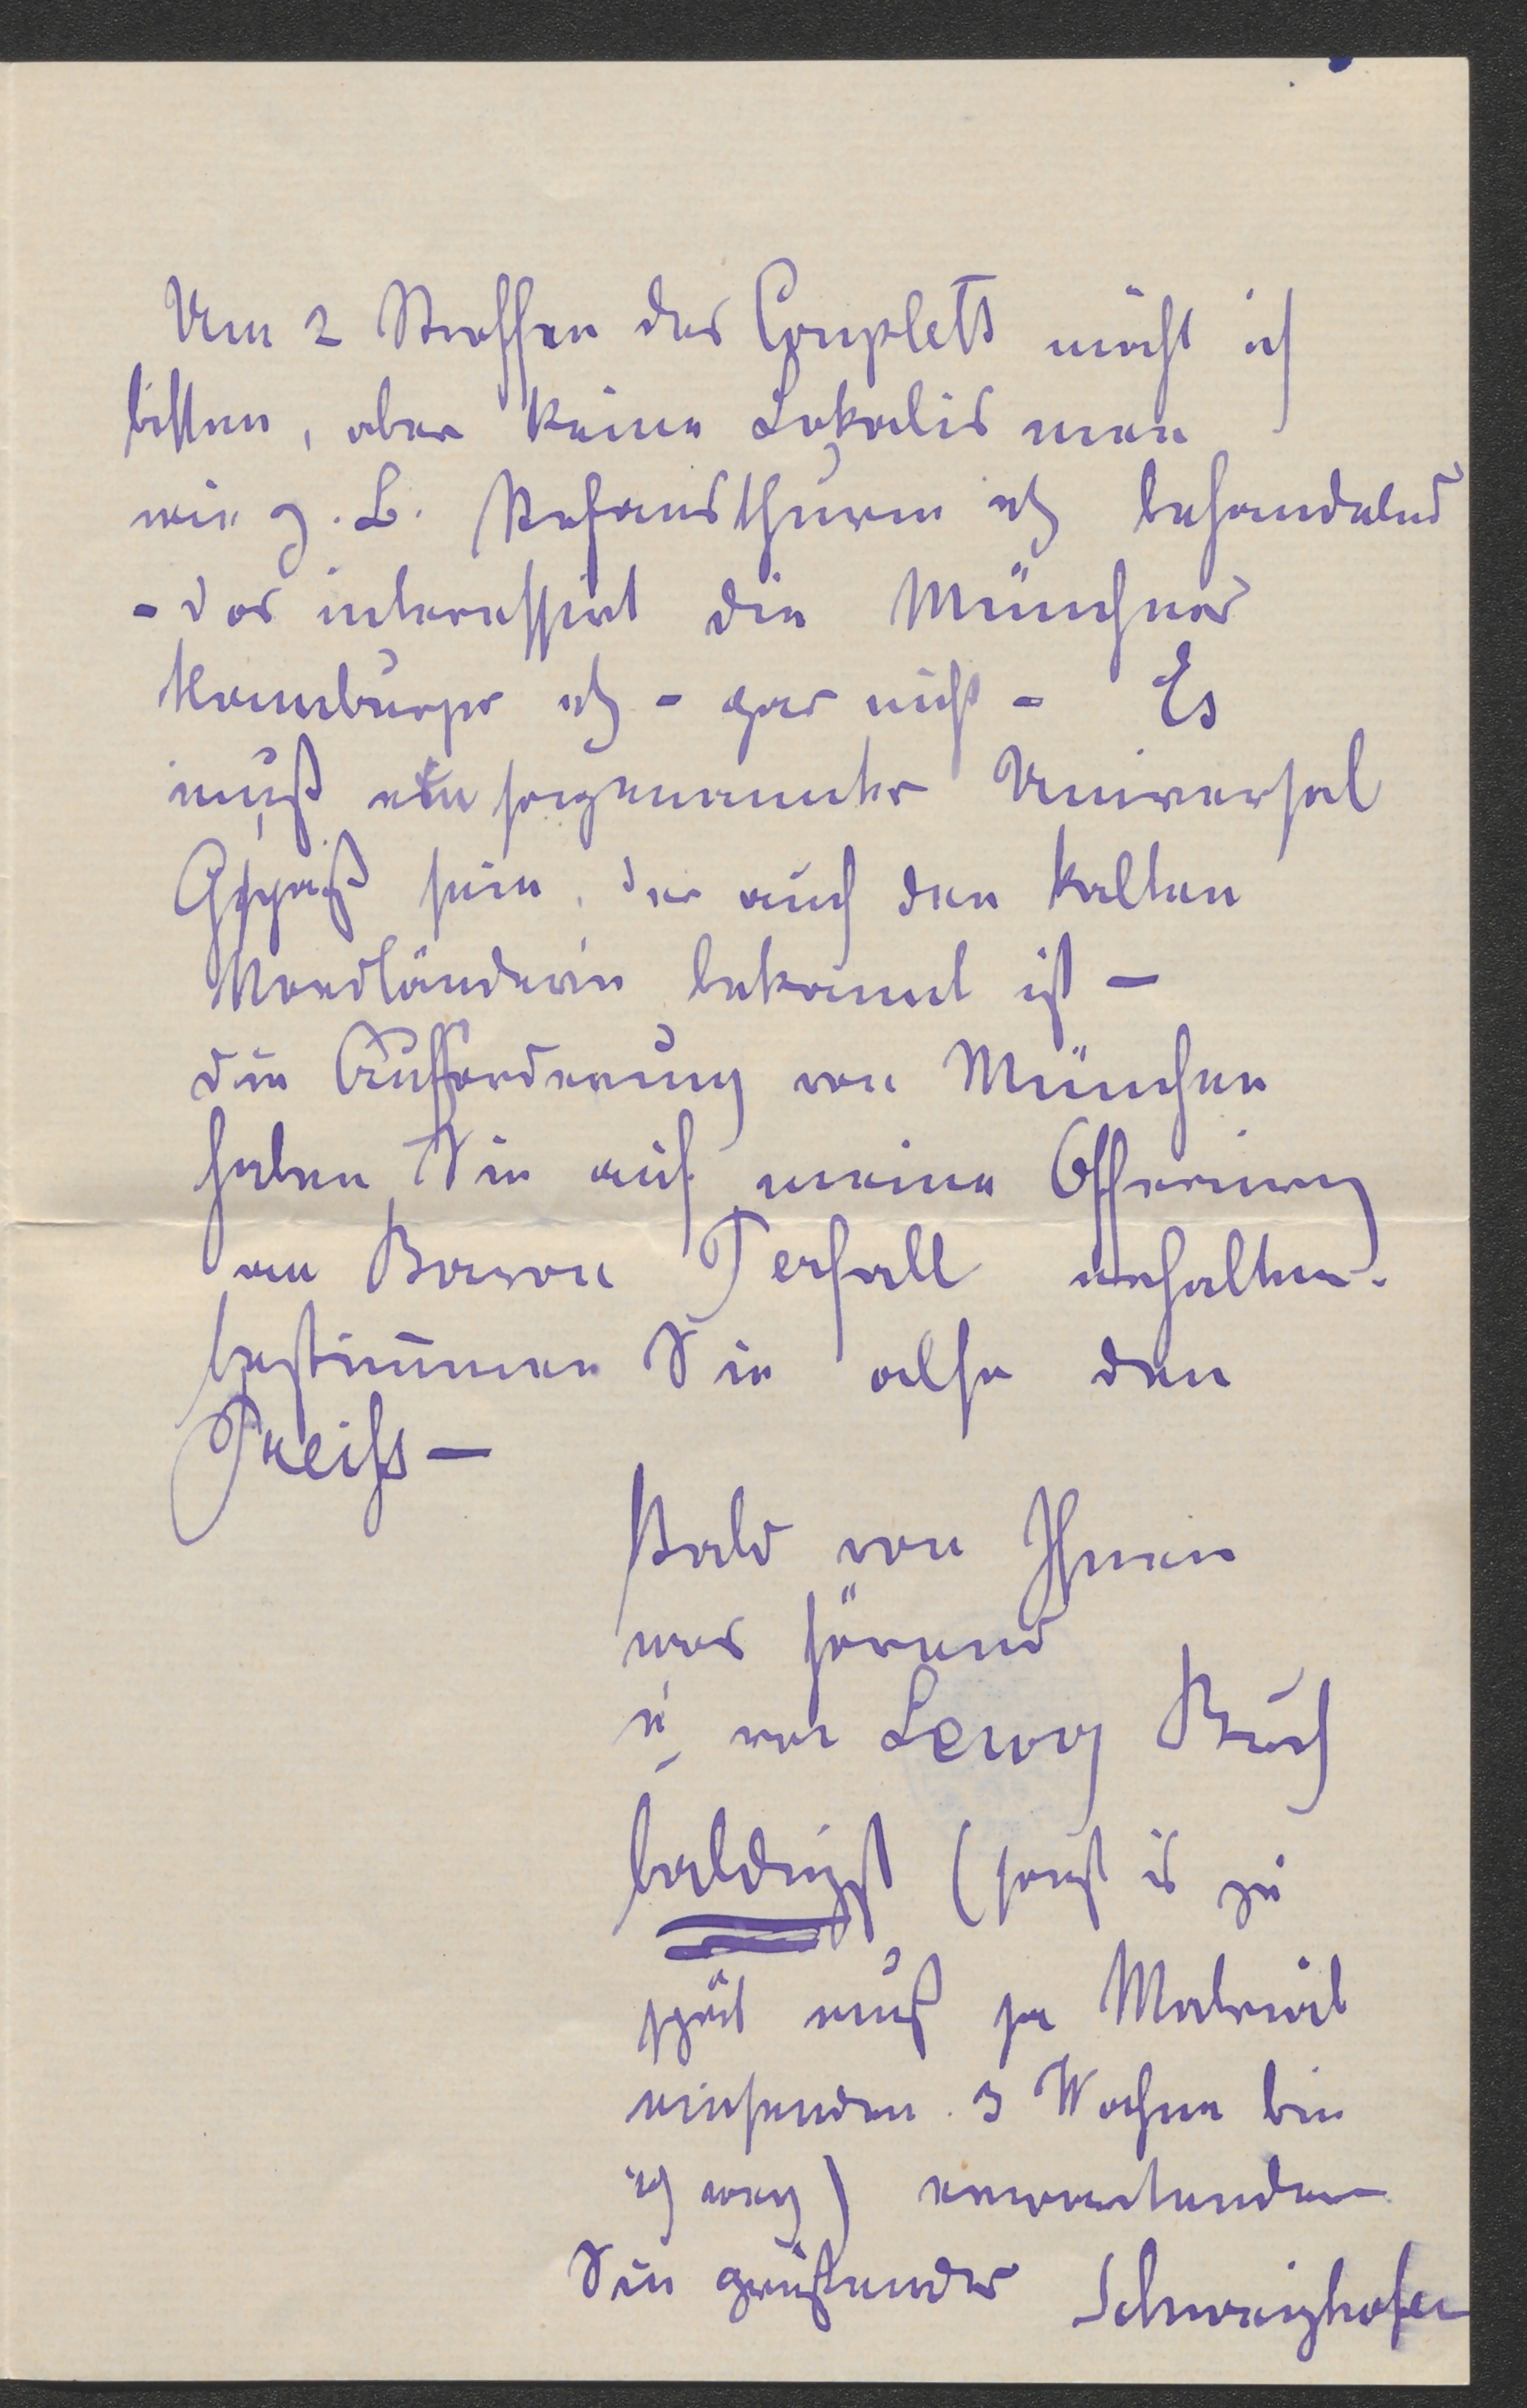 Um 2 Stroffen des Couplets möcht ich
bitten, aber keine Lokalis men
wie z. B. Stefansthurm etz behandelnd
- das interessirt die Münchner
Hamburger etz - gar nicht - Es
muß ein sogenannter Universal
Gspaß sein, der auch den kalten
Nordländern bekannt ist –
die Aufforderung von München
haben Sie auf meine
an Baron Perfall erhalten.
bestimmen Sie also den
Preiss –
Bald von Ihnen
was hörend
u von Buch
baldigst (sonst is zu
spät muß ja Material
einsenden 3 Wochen bin
ich weg) erwartenden
Sie grüßender Schweighofer